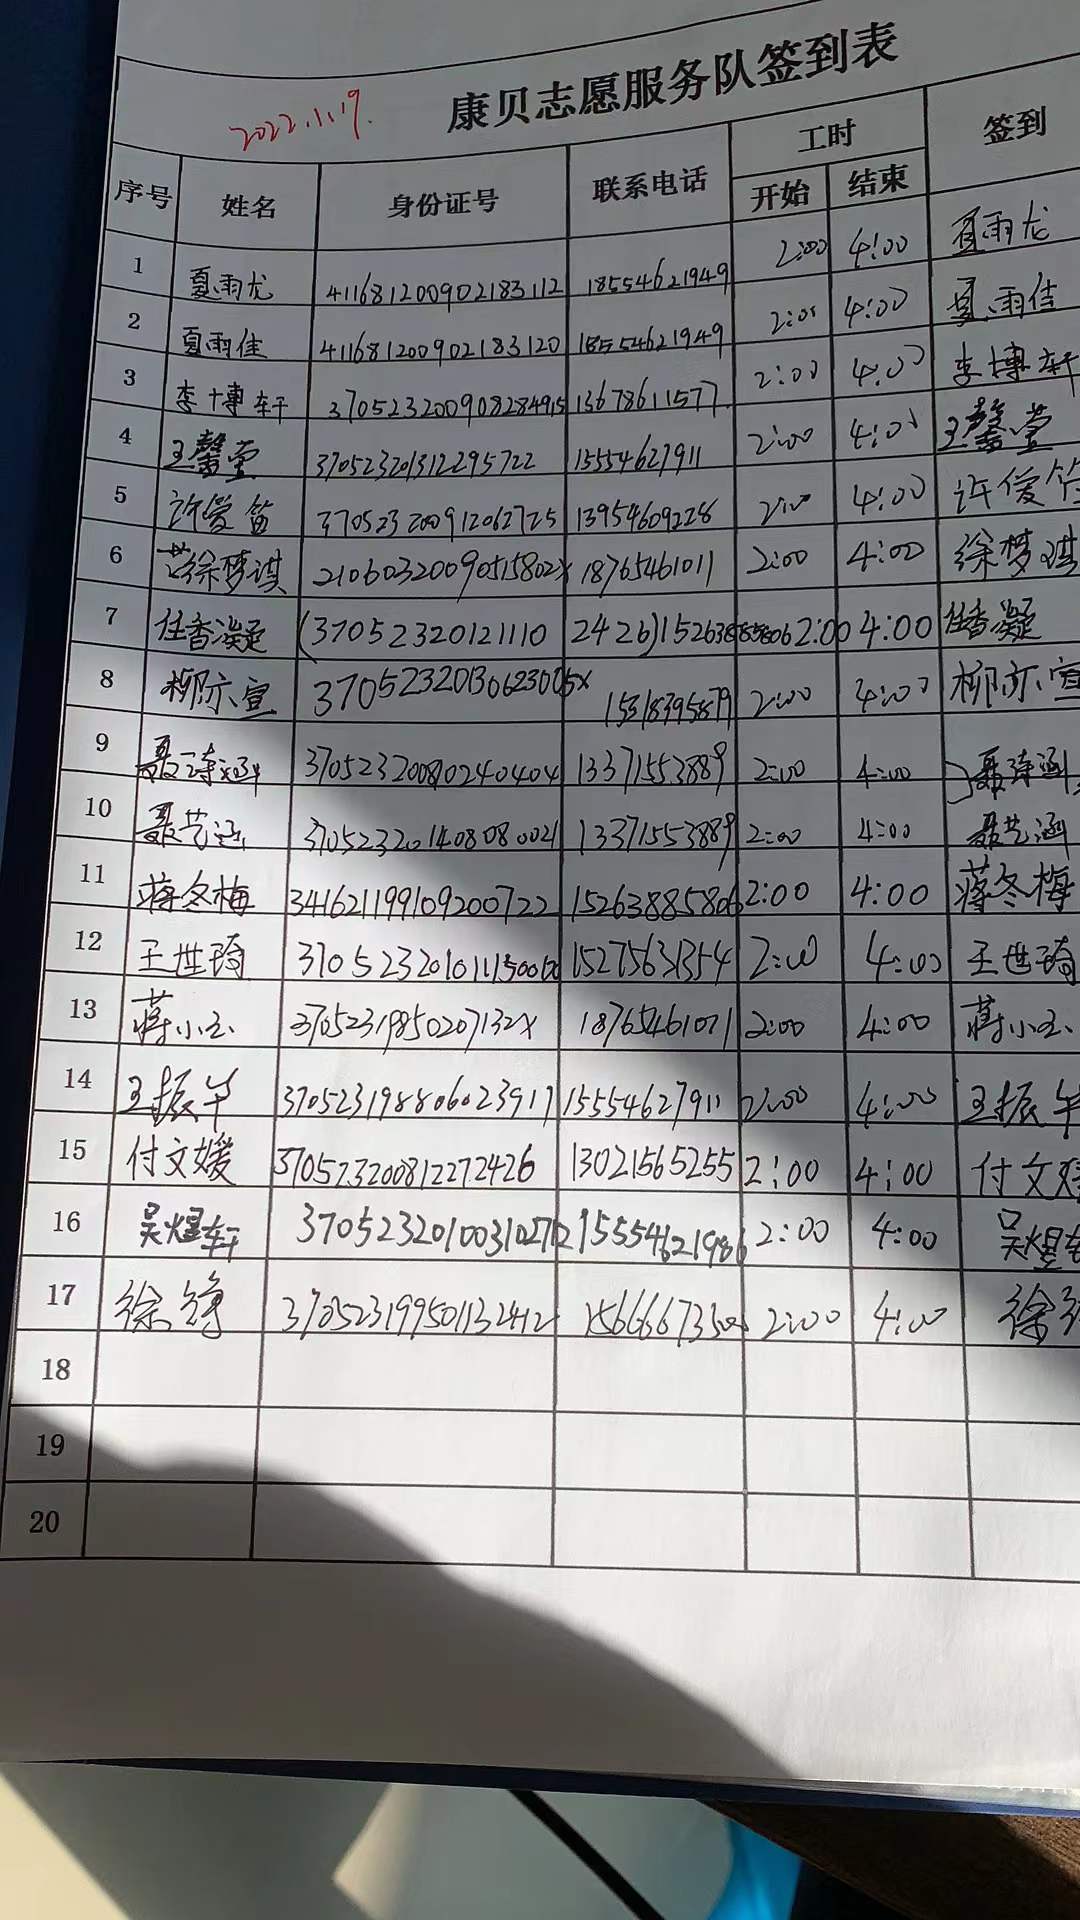 康贝志愿服务队签到表
2022.11.19.
序号 姓名 身份证号 联系电话 工时 签到
开始 结束
1 夏雨龙 411681200902183112 18554621949 2:00 4:00 夏雨龙
2 夏雨佳 411681200902183120 18554621949 2:00 4:00 夏雨佳
3 李博轩 370523200908284915 13678611577 2:00 4:00 李博轩
4 王馨莹 370523201312295722 15554627911 2:00 4:00 王馨莹
5 370523200912062725 13954609228 2:00 4:00
6 徐梦琪 21060320090515802X 18765461011 2:00 4:00 徐梦琪
7 任香凝 (37052320121110 2426) 15263885806 2:00 4:00 任香凝
8 柳亦宣 15318395879 2:00 4:00 柳亦宣
9 聂诗涵 370523200810240404 13371553889 2:00 4:00 聂诗涵
10 聂艺涵 370523201408080021 13371553889 2:00 4:00 聂艺涵
11 蒋冬梅 341621199109200722 15263885806 2:00 4:00 蒋冬梅
12 王世琦 15275631354 2:00 4:00 王世琦
13 蒋小玉 37052319850207132X 18765461071 2:00 4:00 蒋小玉
14 王振华 370523198806023917 15554627911 2:00 4:00 王振华
15 付文媛 370523200812272426 13021565255 2:00 4:00 付文媛
16 吴煜轩 2:00 4:00 吴煜轩
17 370523199501132412 2:00 4:00
18
19
20